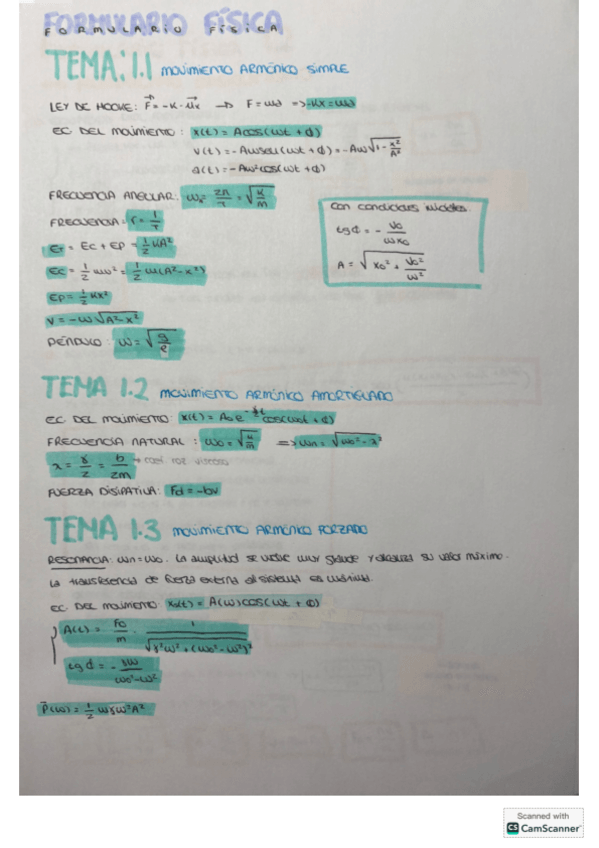 FORMULARIO FÍSICA
FORMULARIO FÍSICA
TEMA: 1.1 MOVIMIENTO ARMÓNICO SIMPLE
LEY DE HOOKE: F = -K · ux → F = ma => -Kx = ma
EC DEL MOVIMIENTO: x(t) = A cos(ωt + ϕ)
v(t) = -Aω sen(ωt + ϕ) = -Aω √1 - x²/A²
a(t) = -Aω² cos(ωt + ϕ)
FRECUENCIA ANGULAR: ω = 2π/T = √K/m
FRECUENCIA: f = 1/T
ET = Ec + EP = 1/2 KA²
EC = 1/2 mv² = 1/2 K(A² - x²)
EP = 1/2 Kx²
V = -ω √A² - x²
PÉNDULO: ω = √g/l
Con condiciones iniciales.
tg ϕ = - V0/ωx0
A = √x0² + V0²/ω²
TEMA 1.2 MOVIMIENTO ARMÓNICO AMORTIGUADO
EC. DEL MOVIMIENTO: x(t) = A0 e cos(ωt + ϕ)
FRECUENCIA NATURAL: ω0 = √K/m => ωn = √ω0² - λ²
λ = γ/2 = b/2m → coef. roz viscoso
FUERZA DISIPATIVA: Fd = -bv
TEMA 1.3 MOVIMIENTO ARMÓNICO FORZADO
RESONANCIA: ωn = ω0. La amplitud se vuelve muy grande y alcanza su valor máximo.
La transferencia de fuerza externa al sistema es máxima.
EC. DEL MOVIMIENTO: x0(t) = A(ω) cos(ωt + ϕ)
A(t) = F0/m · 1/√γ²ω² + (ω0² - ω²)²
tg d = - γω/ω0² - ω²
P(ω) = 1/2 mγω²A²
Scanned with
CS CamScanner